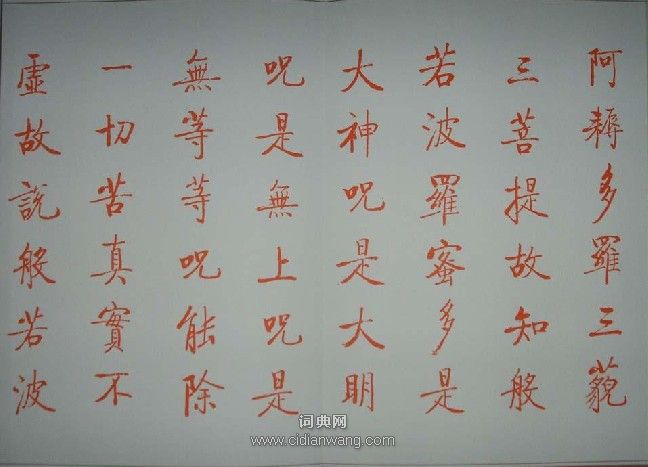 阿耨多羅三藐
三菩提故知般
若波羅蜜多是
大神呪是大明
呪是無上呪是
無等等呪能除
一切苦真實不
虛故說般若波
词典网
www.cidianwang.com